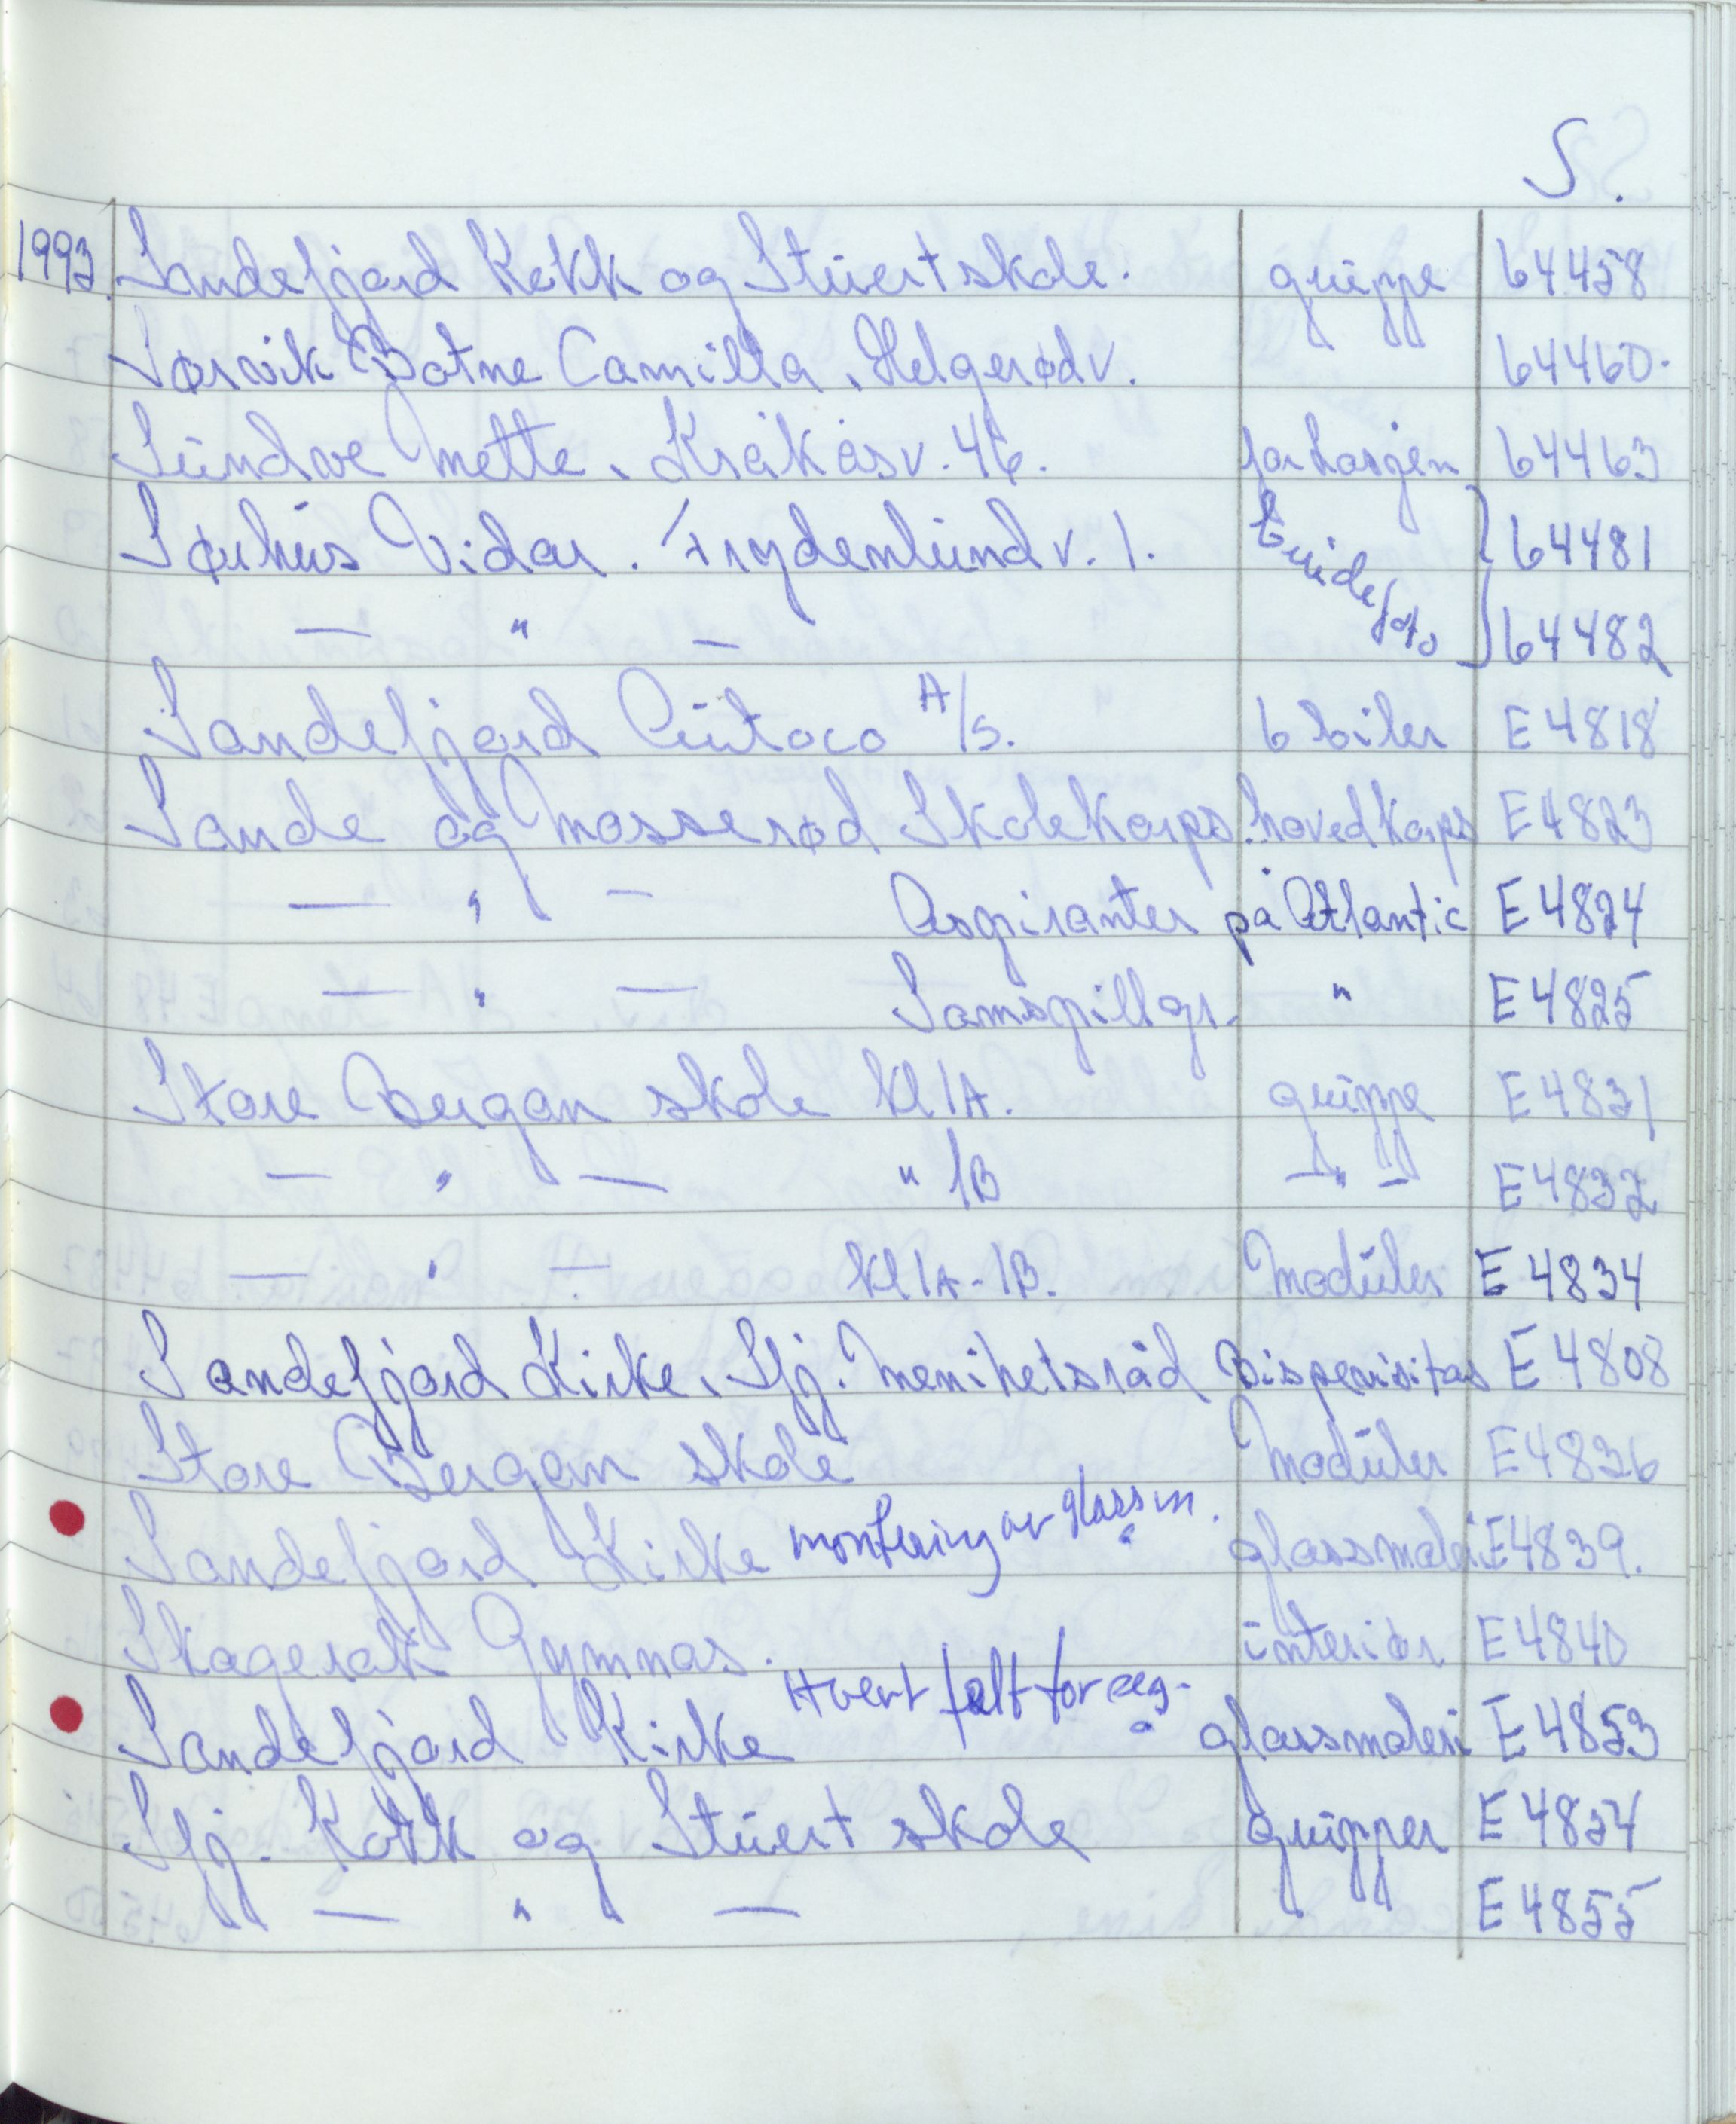 S.
1993. Sandefjord Kokk og Stuertskole. gruppe 64458
Sørvik Botne Camilla, Helgerødv. 64460.
Mette, Kråkåsv. 46. 64463
Sørhus Vidar. Frydenlundv. 1. Brudefoto 64481
— " — 64482
Sandefjord Autoco A/S. 6 biler E4818
Sande og Mosserød Skolekorps. hovedkorps E4823
— " — Aspiranter på Atlantic E4824
— " — Samspillgr. " E4825
Store Bergan skole Kl 1A. gruppe E4831
— " — " 1B — " — E4832
— " — Kl 1A-1B. Moduler E4834
Sandefjord Kirke, Sfj. Menihetsråd Bispevisitas E4808
Store Bergan skole Moduler E4836
Sandefjord Kirke montering av glassm. glassmaleri E4839.
Skagerak Gymnas. interiør E4840
Sandefjord Kirke Hvert felt for seg. glassmaleri E4853
Sfj. Kokk og Stuert skole grupper E4854
— " — E4855